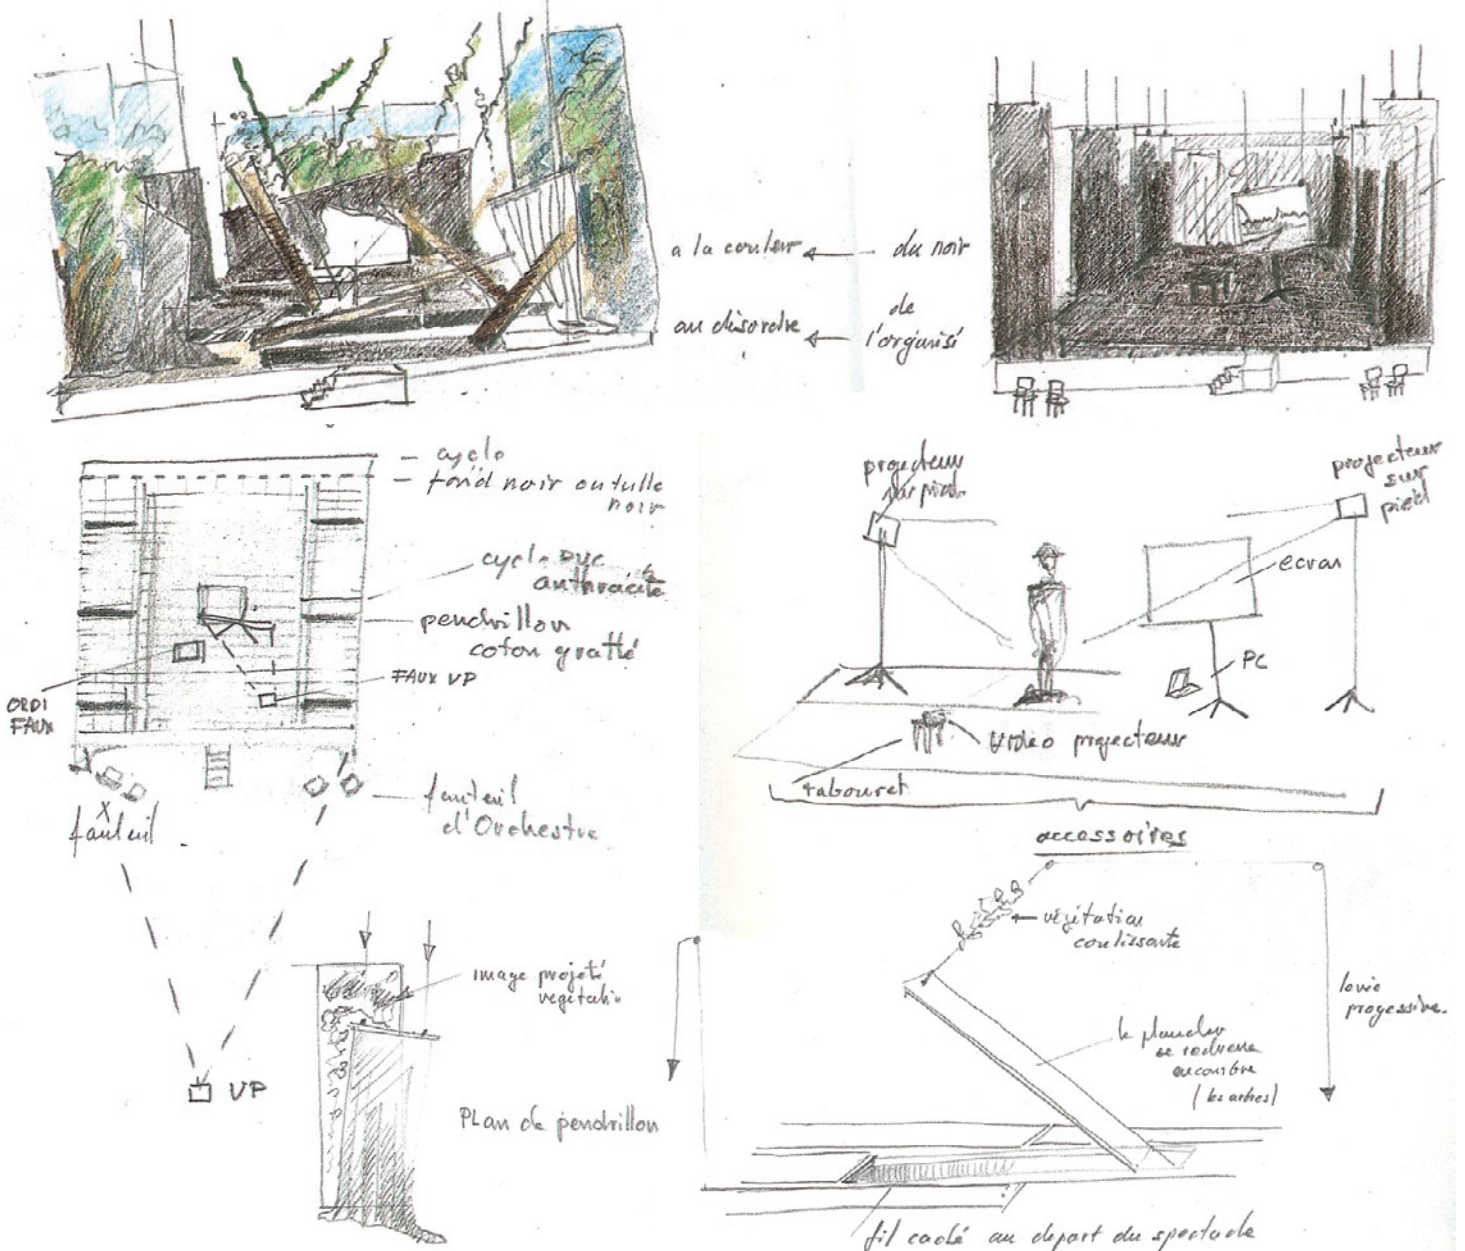 a la couleur ← du noir
au désordre ← de
l'organisé
cyclo
fond noir ou tulle
noir
cyclo PVC
anthracite
pendrillon
coton gratté
FAUX VP
ORDI
FAUX
fauteuil
d'Orchestre
X
fauteuil
VP
image projeté
Plan de pendrillon
projecteur
sur pied
projecteur
sur
pied
ecran
PC
vidéo projecteur
tabouret
accessoires
végétation
coulissante
progessive.
le plancher
se
(les arbres)
fil caché au depart du spectacle